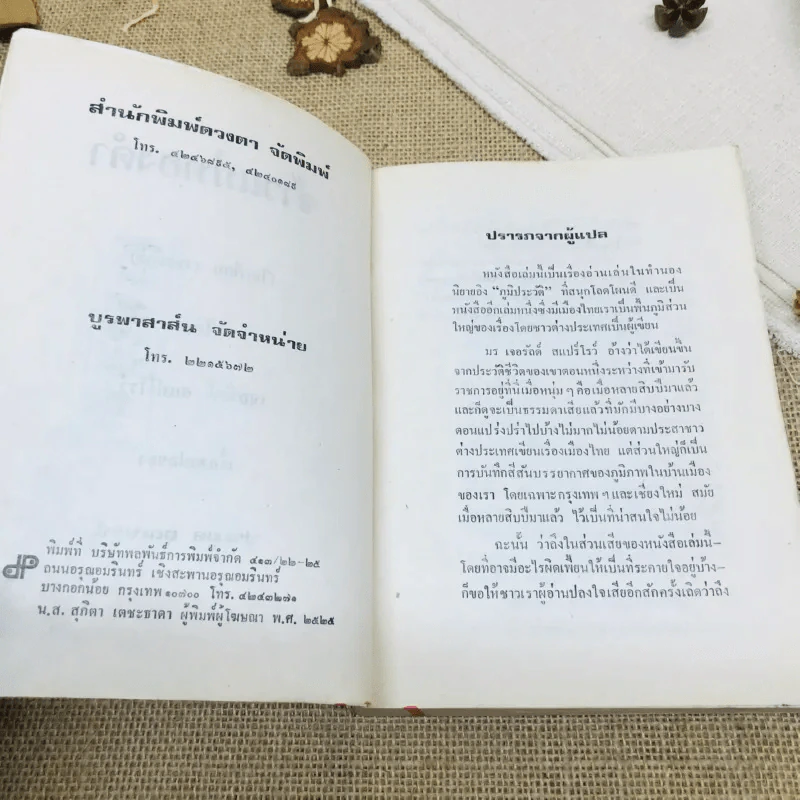 สำนักพิมพ์ดวงตา จัดพิมพ์
โทร. ๔๒๔๖๘๕๕, ๔๒๔๐๑๘๕
บูรพาสาส์น จัดจำหน่าย
โทร. ๒๒๑๕๖๗๒
พิมพ์ที่ บริษัทพลพันธ์การพิมพ์จำกัด ๔๑๓/๒๒-๒๕
ถนนอรุณอมรินทร์ เชิงสะพานอรุณอมรินทร์
บางกอกน้อย กรุงเทพ ๑๐๗๐๐ โทร. ๔๒๔๓๒๗๑
น.ส. สุภิตา เตชะธาดา ผู้พิมพ์ผู้โฆษณา พ.ศ. ๒๕๒๕
ปรารภจากผู้แปล
หนังสือเล่มนี้เป็นเรื่องอ่านเล่นในทำนอง
นิยายอิง “ภูมิประวัติ” ที่สนุกโลดโผนดี และเป็น
หนังสืออีกเล่มหนึ่งซึ่งมีเมืองไทยเราเป็นพื้นภูมิส่วน
ใหญ่ของเรื่องโดยชาวต่างประเทศเป็นผู้เขียน
มร เจอรัลด์ สแปร์โรว์ อ้างว่าได้เขียนขึ้น
จากประวัติชีวิตของเขาตอนหนึ่งระหว่างที่เข้ามารับ
ราชการอยู่ที่นี่เมื่อหนุ่ม ๆ คือเมื่อหลายสิบปีมาแล้ว
และก็ดูจะเป็นธรรมดาเสียแล้วที่มักมีบางอย่างบาง
ตอนแปร่งปร่าไปบ้างไม่มากไม่น้อยตามประสาชาว
ต่างประเทศเขียนเรื่องเมืองไทย แต่ส่วนใหญ่ก็เป็น
การบันทึกสีสันบรรยากาศของภูมิภาพในบ้านเมือง
ของเรา โดยเฉพาะกรุงเทพ ๆ และเชียงใหม่ สมัย
เมื่อหลายสิบปีมาแล้ว ไว้เป็นที่น่าสนใจไม่น้อย
ฉะนั้น ว่าถึงในส่วนเสียของหนังสือเล่มนี้–
โดยที่อาจมีอะไรผิดเพี้ยนให้เป็นที่ระคายใจอยู่บ้าง–
ก็ขอให้ชาวเราผู้อ่านปลงใจเสียอีกสักครั้งเถิดว่าถึง